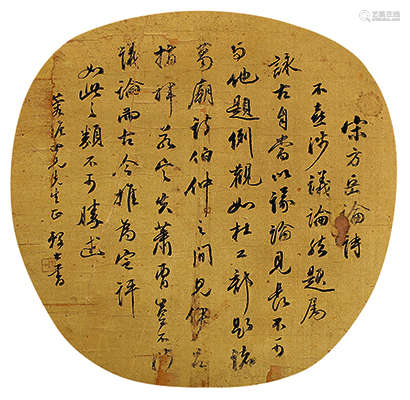 宋方岳論詩
不喜涉議論然題屬
詠古自當以議論見長不可
与他題例觀如杜工部題諸
葛廟詩伯仲之間見伊呂
指揮若定失蕭曹豈不涉
議論而古今推為定評
如此之類不可勝述
兄先生正 書
艺典在线